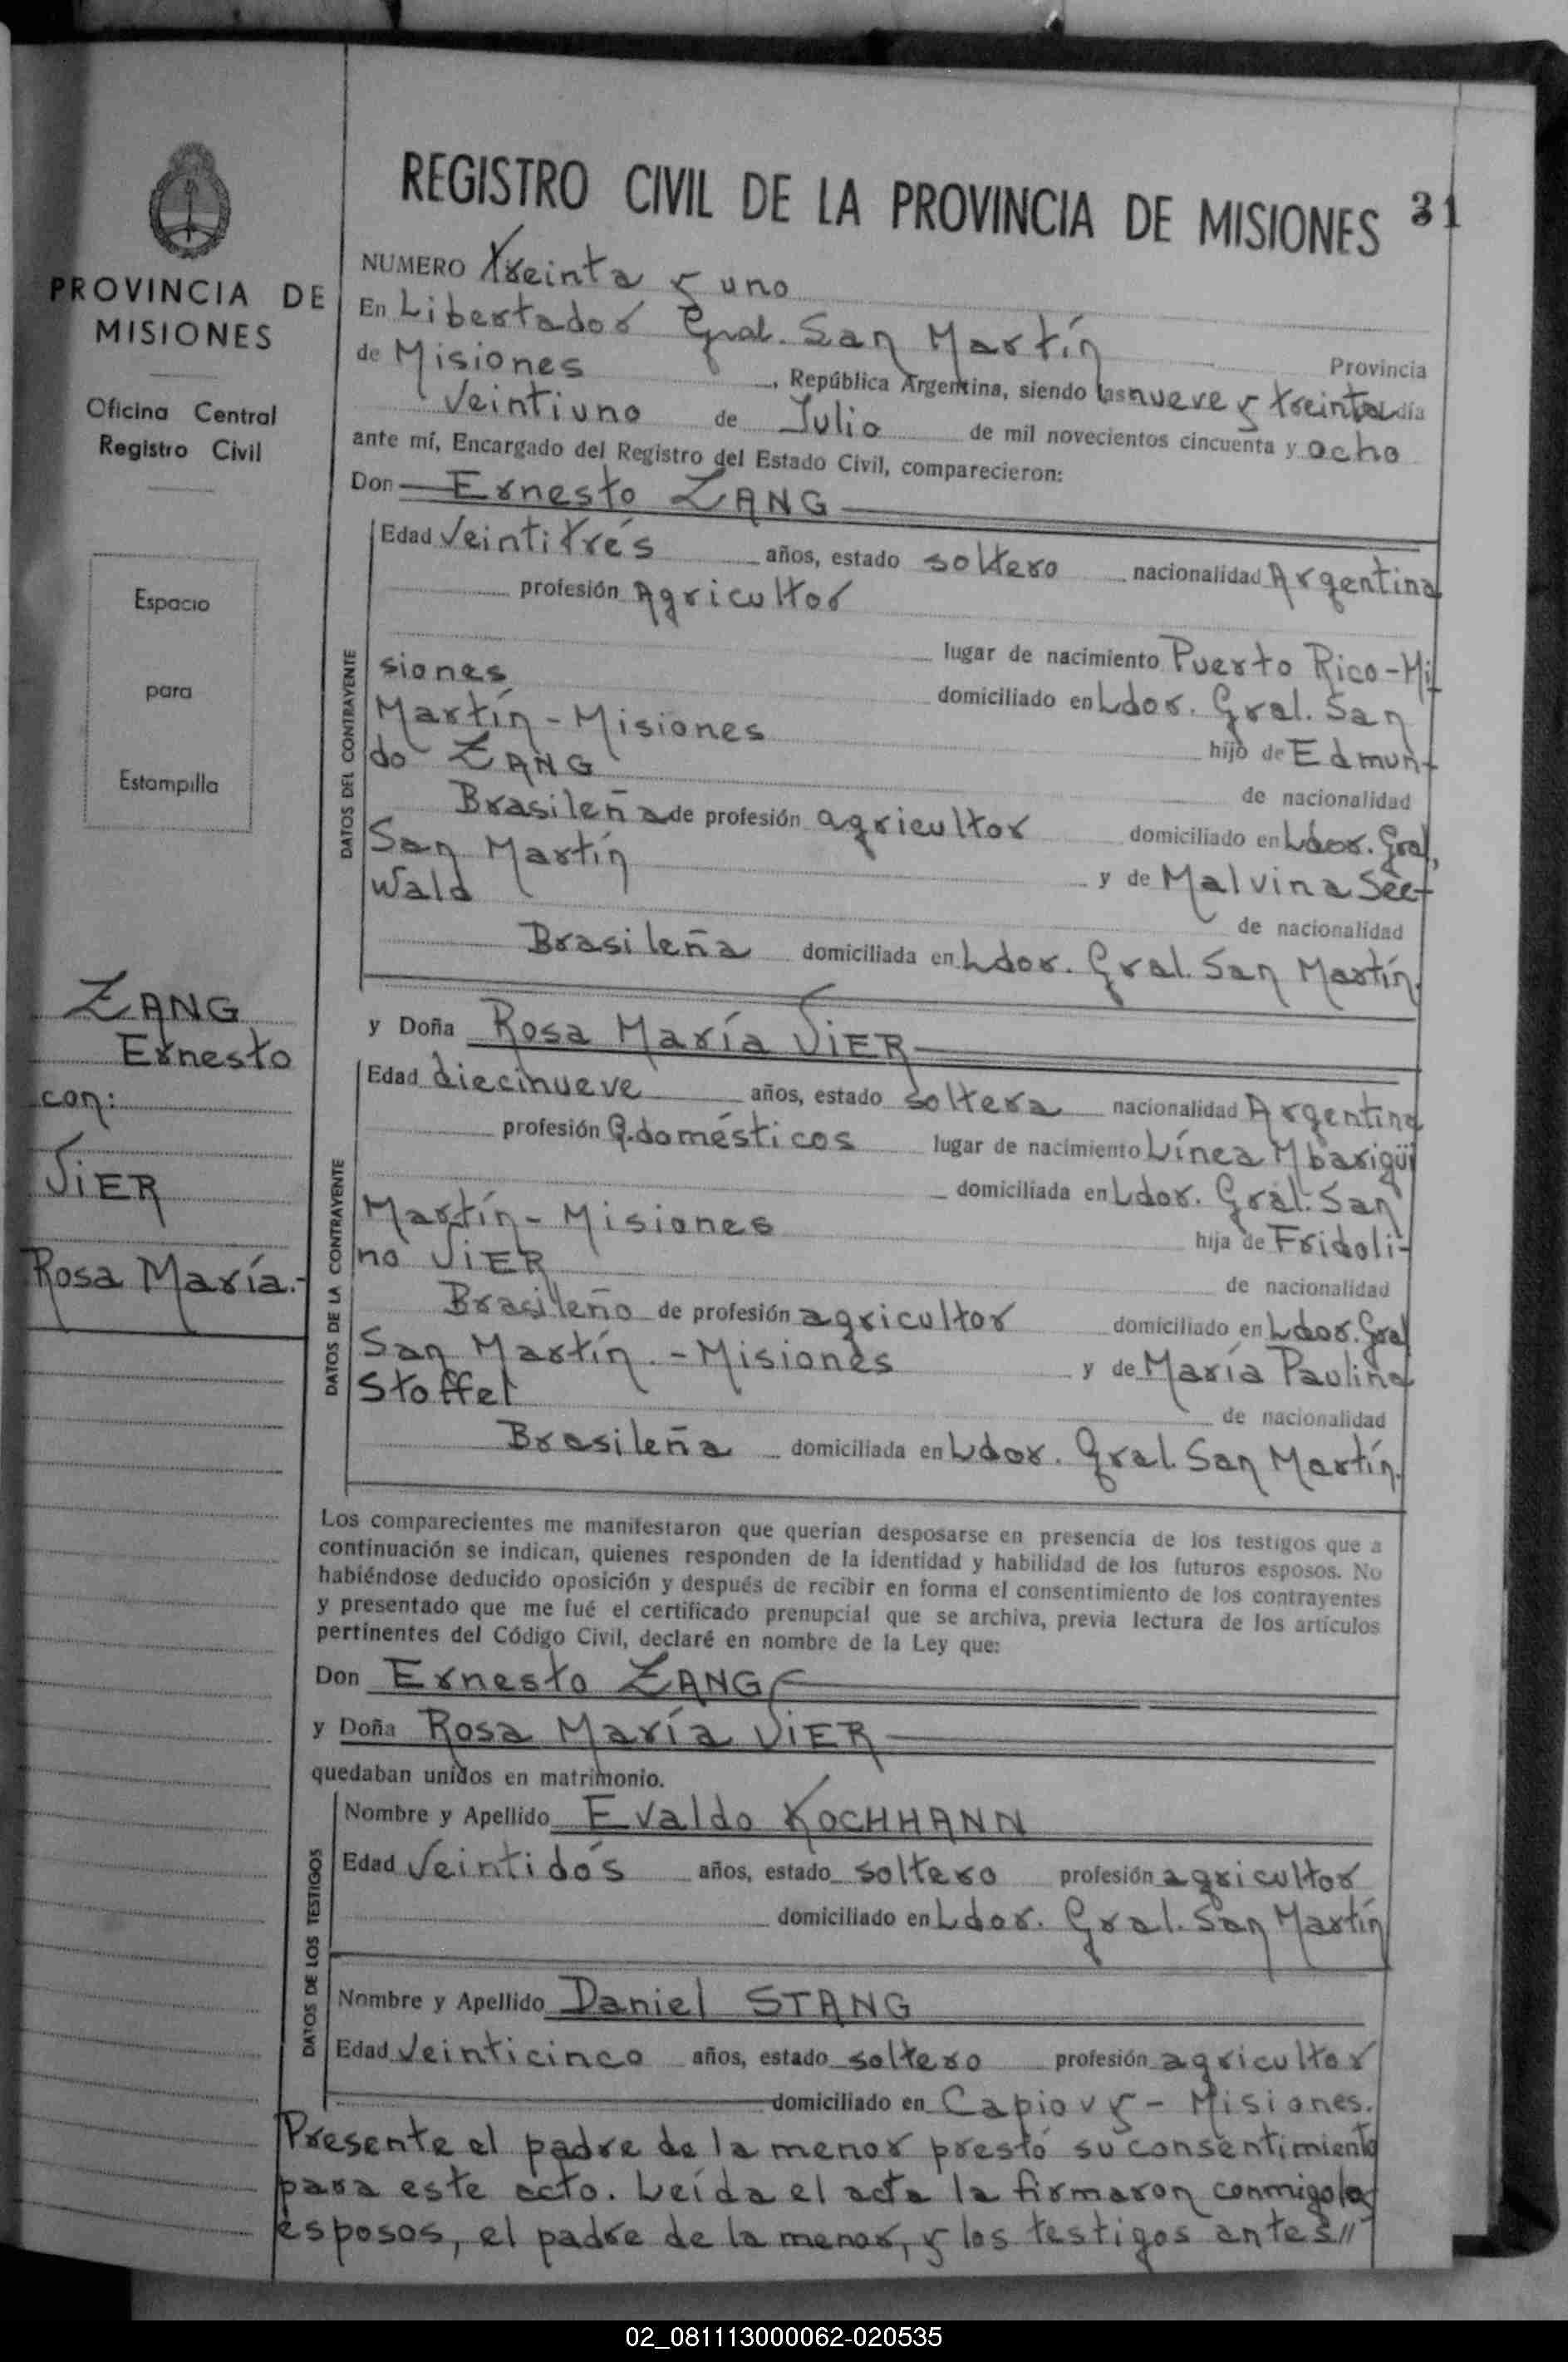 REGISTRO CIVIL DE LA PROVINCIA DE MISIONES 31
PROVINCIA DE
MISIONES
Oficina Central
Registro Civil
Espacio
para
Estampilla
ZANG
Ernesto
con:
VIER
Rosa María.-
NUMERO treinta y uno
En Libertador Gral. San Martín Provincia
de Misiones, República Argentina, siendo las nueve y treinta día
Veintiuno de Julio de mil novecientos cincuenta y ocho
ante mí, Encargado del Registro del Estado Civil, comparecieron:
Don Ernesto ZANG
DATOS DEL CONTRAYENTE
Edad Veintitrés años, estado soltero nacionalidad Argentina
profesión Agricultor
lugar de nacimiento Puerto Rico-Mi-
siones domiciliado en Ldor. Gral. San
Martín - Misiones hijo de Edmun-
do ZANG de nacionalidad
Brasileña de profesión agricultor domiciliado en Ldor. Gral,
San Martín y de Malvina See-
Wald de nacionalidad
Brasileña domiciliada en Ldor. Gral. San Martín.
y Doña Rosa María VIER
DATOS DE LA CONTRAYENTE
Edad diecinueve años, estado soltera nacionalidad Argentina
profesión Q.domésticos lugar de nacimiento Línea Mbarigüi
domiciliada en Ldor. Gral. San
Martín - Misiones hija de Fridoli-
no VIER de nacionalidad
Brasileño de profesión agricultor domiciliado en Ldor. Gral
San Martín. - Misiones y de María Paulina
Stoffel de nacionalidad
Brasileña domiciliada en Ldor. Gral. San Martín.
Los comparecientes me manifestaron que querían desposarse en presencia de los testigos que a
continuación se indican, quienes responden de la identidad y habilidad de los futuros esposos. No
habiéndose deducido oposición y después de recibir en forma el consentimiento de los contrayentes
y presentado que me fué el certificado prenupcial que se archiva, previa lectura de los artículos
pertinentes del Código Civil, declaré en nombre de la Ley que:
Don Ernesto ZANG
y Doña Rosa María VIER
quedaban unidos en matrimonio.
DATOS DE LOS TESTIGOS
Nombre y Apellido Evaldo KOCHHANN
Edad Veintidós años, estado soltero profesión agricultor
domiciliado en Ldor. Gral. San Martín
Nombre y Apellido Daniel STANG
Edad Veinticinco años, estado soltero profesión agricultor
domiciliado en Capiovy - Misiones.
Presente el padre de la menor prestó su consentimiento
para este acto. Leída el acta la firmaron conmigo los
esposos, el padre de la menor, y los testigos antes//
02_081113000062-020535